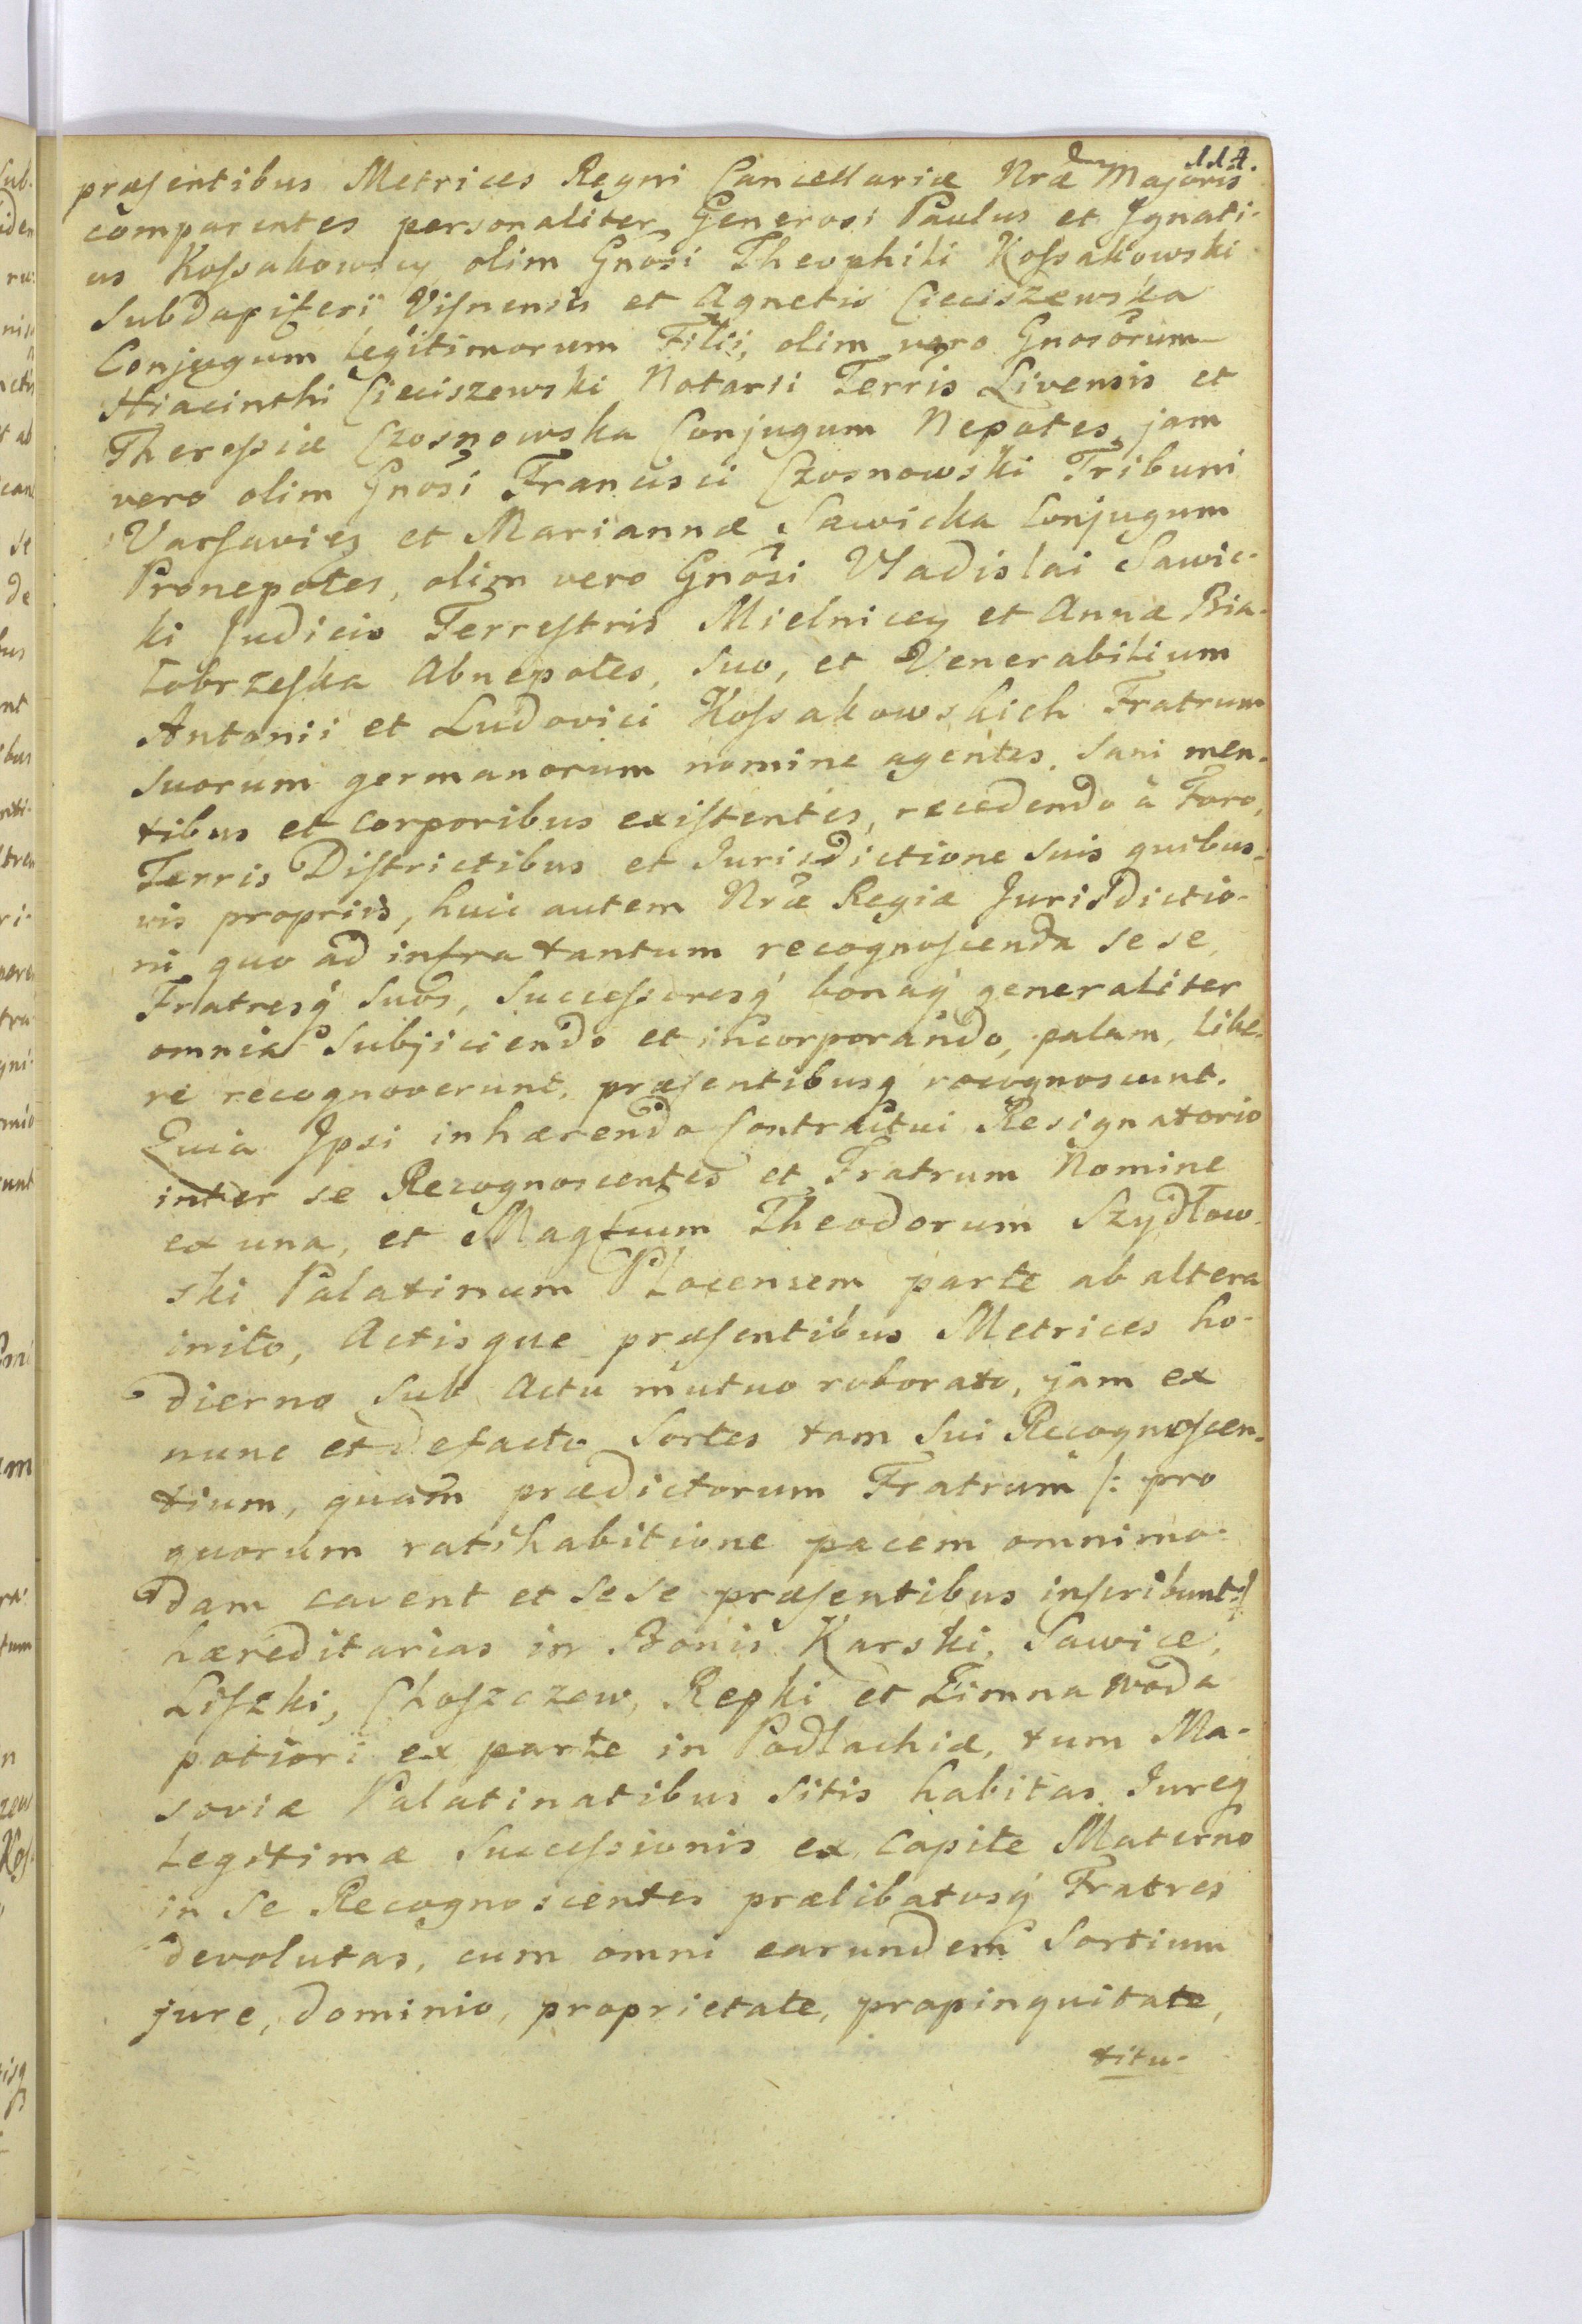 114.
præsentibus Metrices Regni Cancellariæ Nræ Majoris
comparentes personaliter Generosi Paulus et Ignati-
us Kossakowscy olim Gnosi Theophili Kossakowski
Subdapiferi Visnensis et Agnetis Cieciszewska
Conjugum Legitimorum Filii, olim vero Gnosorum
Hiacinthi Cieciszewski Notarii Terris Livensis et
Theressiæ Czosnowska Conjugum Nepotes, jam
vero olim Gnosi Francisci Czosnowski Tribuni
Varsavies et Mariannæ Sawicka Conjugum
Pronepotes, olim vero Gnosi Vladislai Sawic-
ki Judicis Terrestris Mielnicen et Annæ Bia-
łobrzeska Abnepotes, suo, et Venerabilium
Antonii et Ludovici Kossakowskich Fratrum
suorum germanorum nomine agentes. Sani men-
tibus et corporibus existentes, recedendo à Foro,
Terris Districtibus et Jurisdictione suis quibus-
vis propriis, huic autem Nræ Regiæ Jurisdictio-
ni quo ad infra tantum recognoscenda se se,
Fratresq suos, Successoresq bonaq generaliter
omnia Subjiciendo et incorporando, palam, libe-
re recognoverunt, præsentibusq recognoscunt.
Quia Ipsi inhærendo Contractui Resignatorio
inter se Recognoscentes et Fratrum Nomine
ex una, et Magfcum Theodorum Szydłow-
ski Palatinum Plocensem parte ab altera
inito, Actisque præsentibus Metrices ho-
dierno sub Actu mutuo roborato, jam ex
nunc et defacto Sortes tam sui Recognoscen-
tium, quam prædictorum Fratrum /: pro
quorum ratihabitione pacem omnimo-
dam cavent et sese præsentibus inscribunt :/
hæreditarias in Bonis Karski, Sawice,
Liszki, Choszczew, Repki et Zimna woda
potiori ex parte in Podlachiæ, tum Ma-
soviæ Palatinatibus sitis habitas. Jureq
Legitimæ Successionis ex Capite Materno
in se Recognoscentes prælibatosq Fratres
devolutas, cum omni earundem Sortium
jure, dominio, proprietate, propinquitate,
titu-